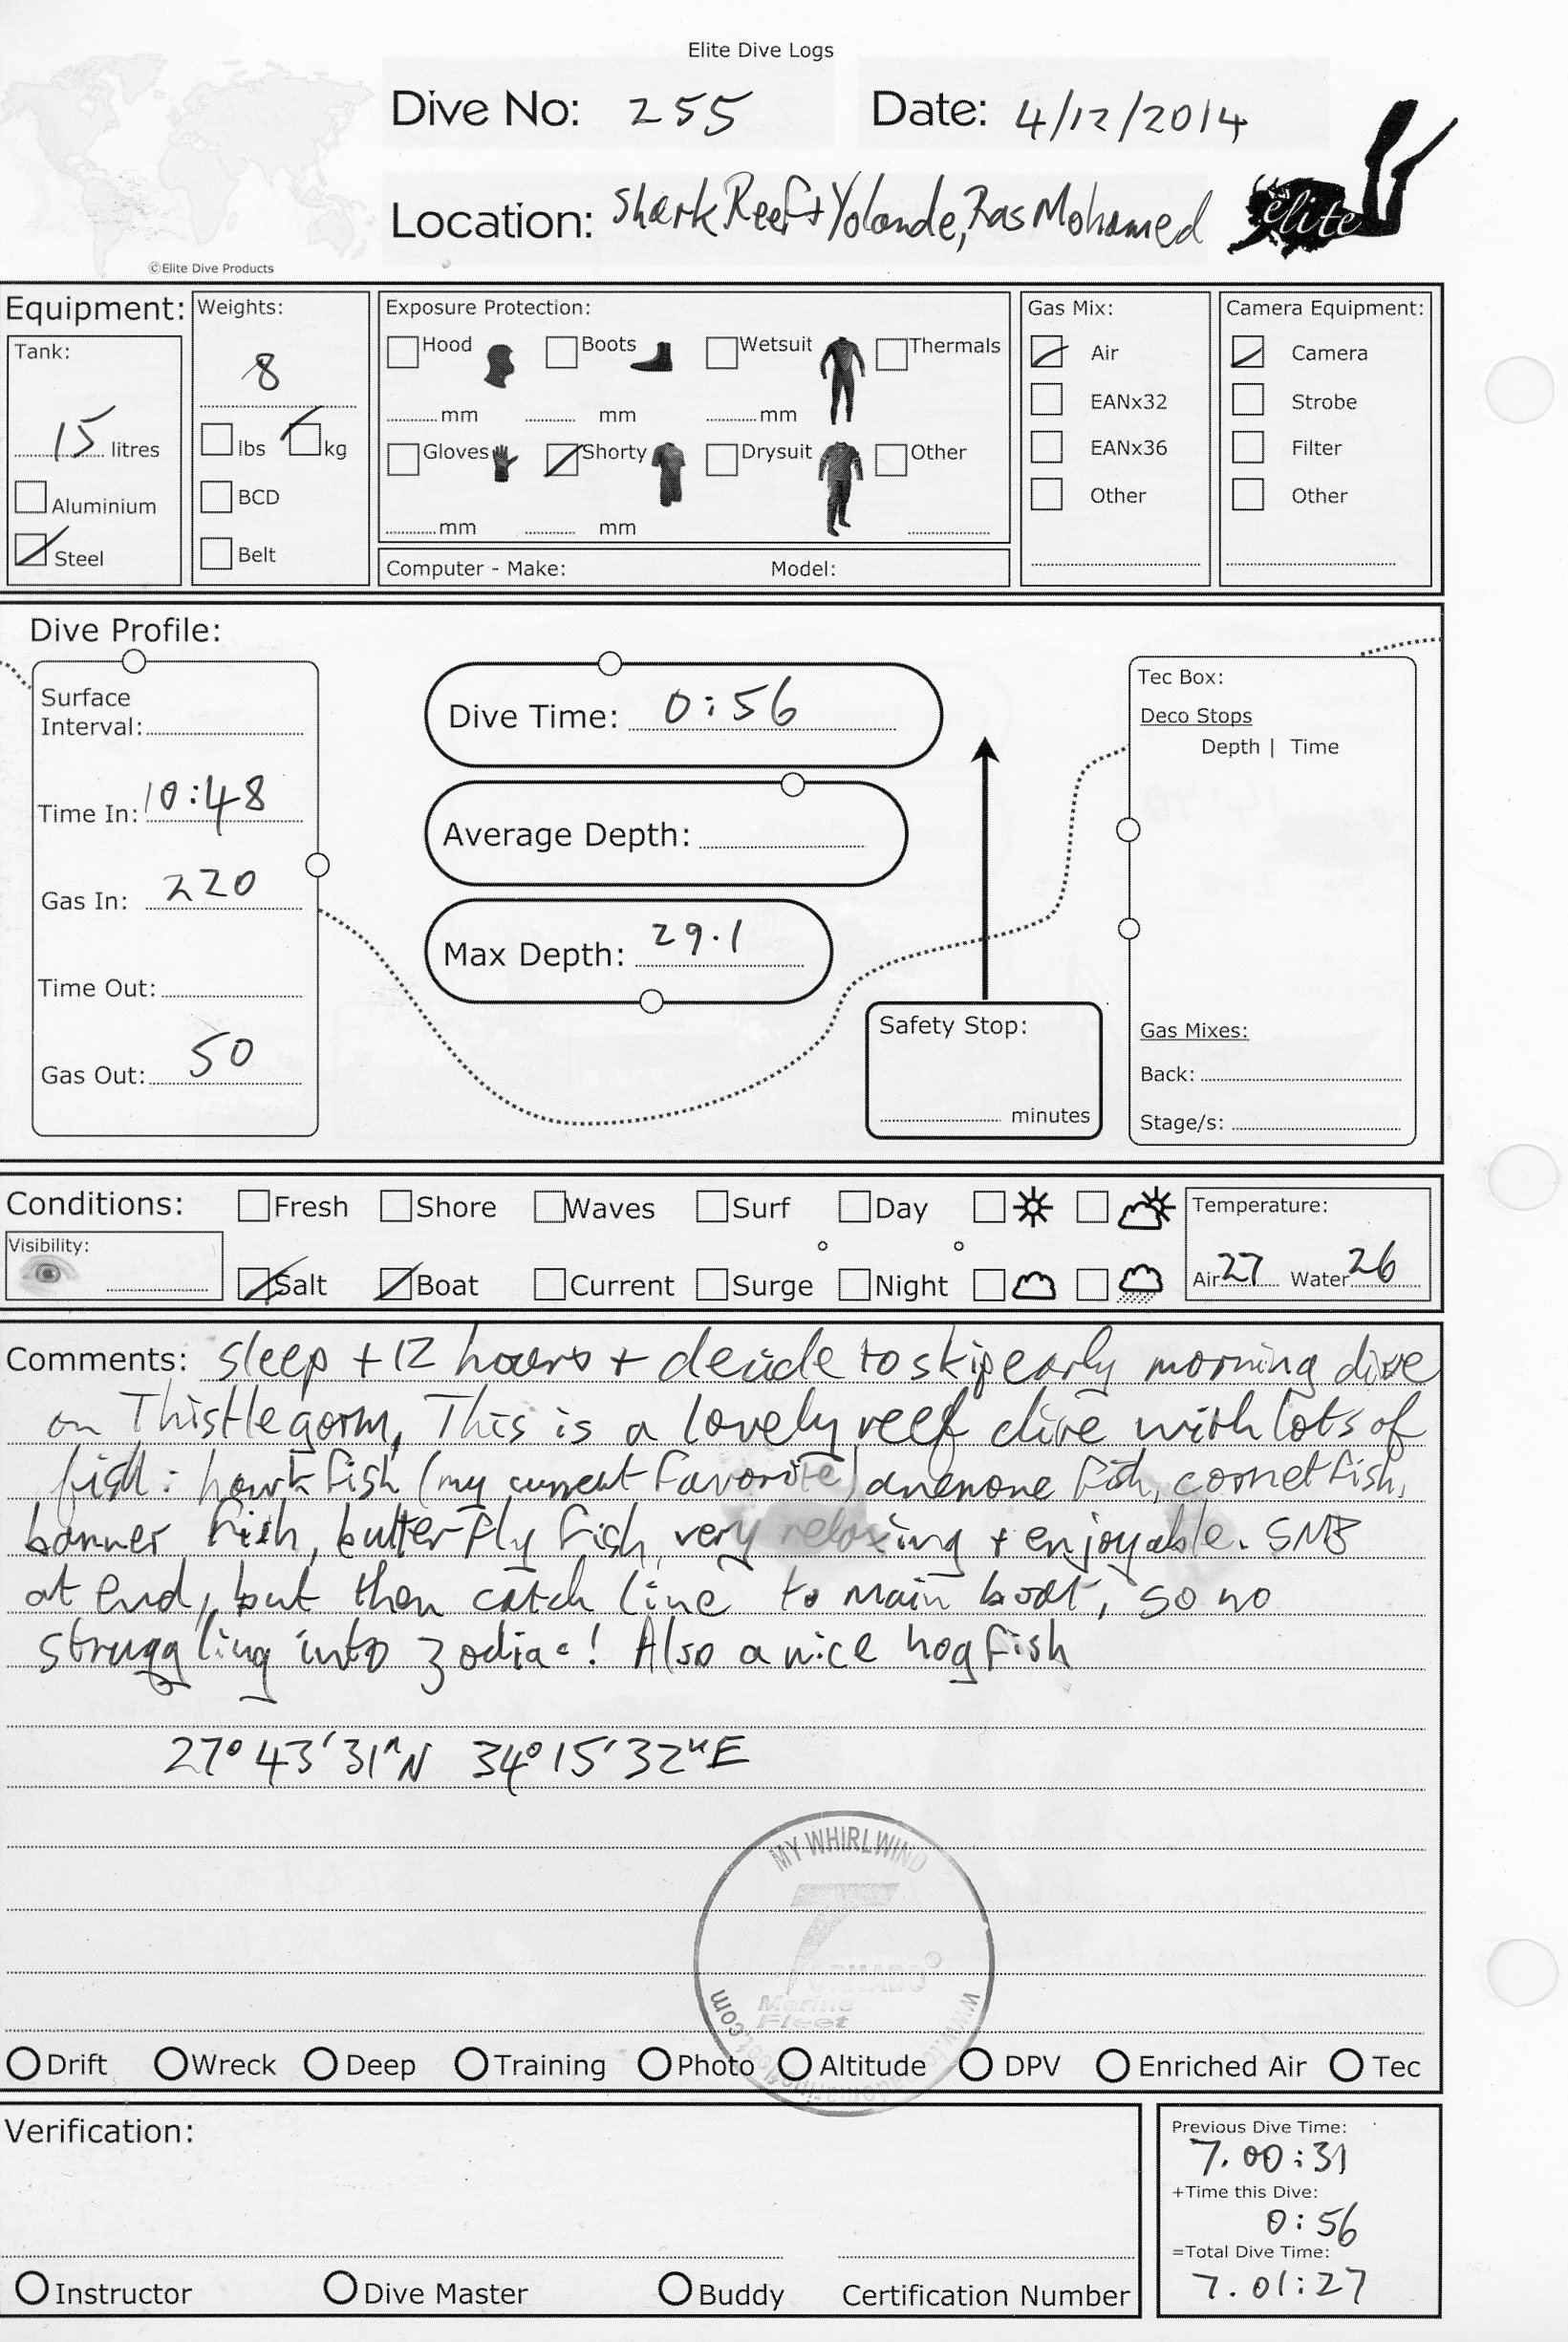 Elite Dive Logs
Dive No: 255 Date: 4/12/2014
Location: Shark Reef + Yolande, Ras Mohamed
elite
©Elite Dive Products
Equipment: Weights: Exposure Protection: Gas Mix: Camera Equipment:
Tank: 8 Hood Boots Wetsuit Thermals Air Camera
mm mm mm EANx32 Strobe
15 litres lbs kg Gloves Shorty Drysuit Other EANx36 Filter
Aluminium BCD Other Other
mm mm
Steel Belt Computer - Make: Model:
Dive Profile:
Surface
Interval:
Time In: 10:48
Gas In: 220
Time Out:
Gas Out: 50
Dive Time: 0:56
Average Depth:
Max Depth: 29.1
Safety Stop:
minutes
Tec Box:
Deco Stops
Depth | Time
Gas Mixes:
Back:
Stage/s:
Conditions: Fresh Shore Waves Surf Day Temperature:
Visibility: Salt Boat Current Surge Night Air 27 Water 26
Comments: sleep +12 hours + decide to skip early morning dive
on Thistlegorm, This is a lovely reef dive with lots of
fish: hawkfish (my current favorite) anemone fish, cornetfish,
banner fish, butterfly fish, very relaxing + enjoyable. SMB
at end, but then catch line to main boat, so no
struggling into zodiac! Also a nice hogfish
27° 43' 31" N 34° 15' 32" E
MY WHIRLWIND
TORNADO
Marine
Fleet
www.tornadomarinefleet.com
Drift Wreck Deep Training Photo Altitude DPV Enriched Air Tec
Verification:
Instructor Dive Master Buddy Certification Number
Previous Dive Time:
7.00:31
+Time this Dive:
0:56
=Total Dive Time:
7.01:27